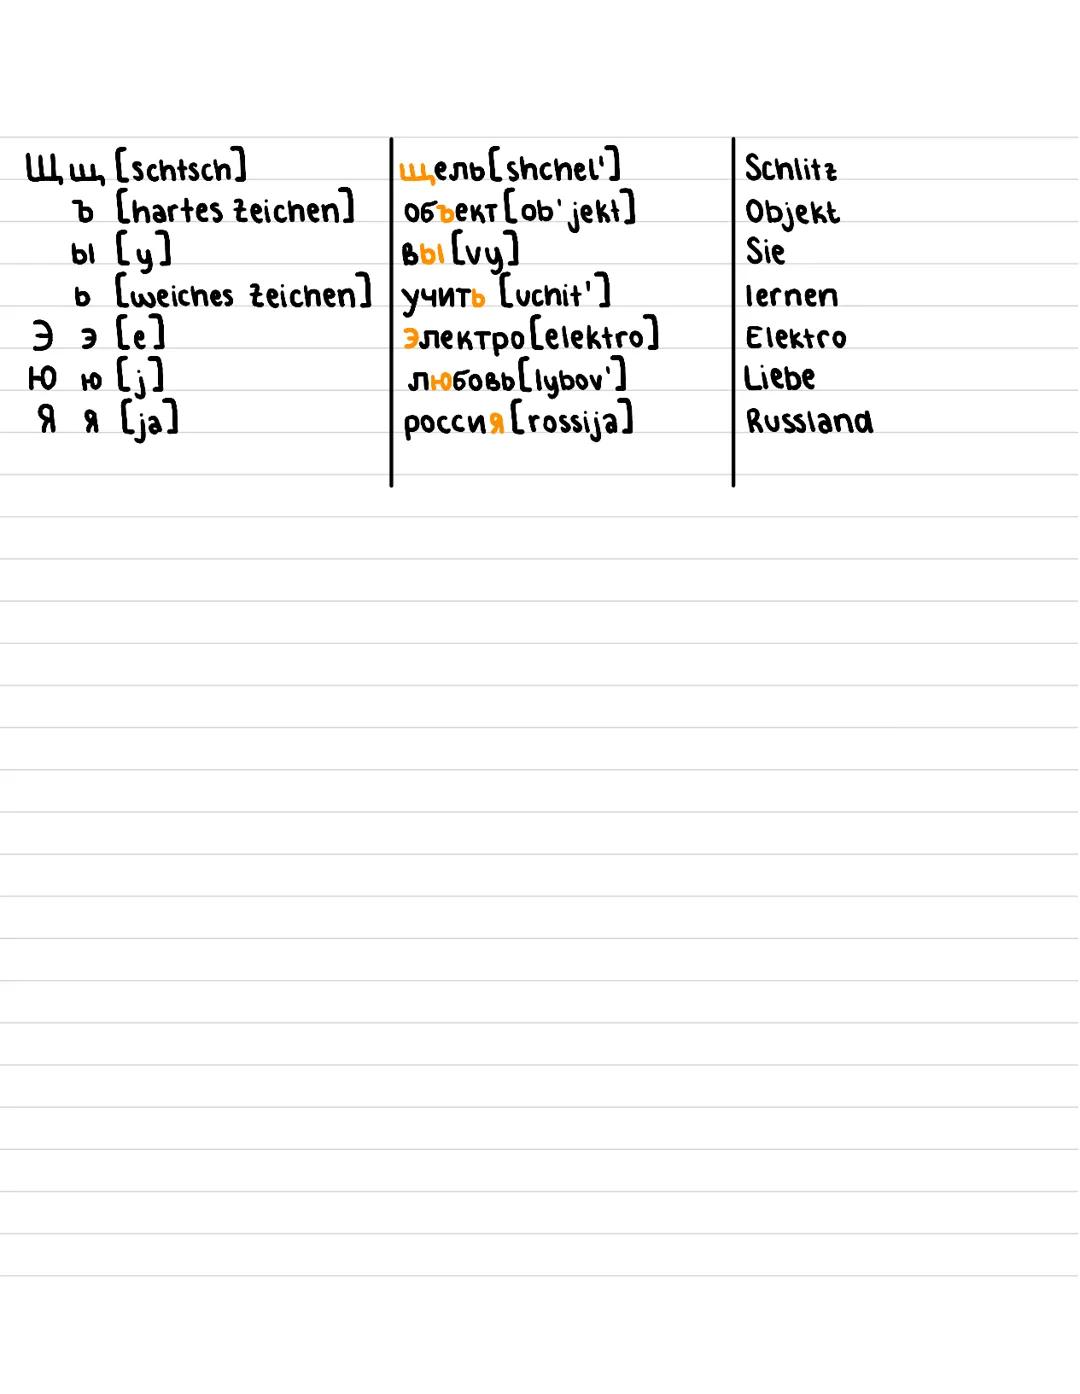 Щ щ [schtsch] щель [shchel'] Schlitz
ъ [hartes Zeichen] объект [ob'jekt] Objekt
ы [y] вы [vy] Sie
ь [weiches Zeichen] учить [uchit'] lernen
Э э [e] электро [elektro] Elektro
Ю ю [j] любовь [lybov'] Liebe
Я я [ja] россия [rossija] Russland